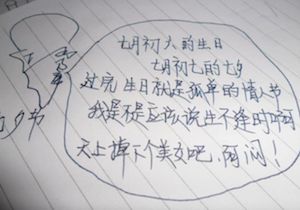 七月初六的生日
七月初七的七夕
过完生日就是孤单的情人节
我是不是应该说生不逢时啊
天上掉下个美女吧，阿门！
七夕节